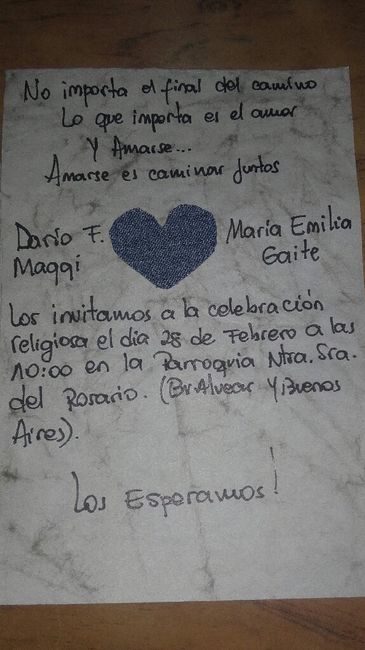 No importa el final del camino
Lo que importa es el amor
Y Amarse...
Amarse es caminar juntos
Darío F.
Maggi
María Emilia
Gaite
Los invitamos a la celebración
religiosa el día 28 de Febrero a las
10:00 en la Parroquia Ntra. Sra.
del Rosario. (Bv. Alvear y Buenos
Aires).
Los Esperamos!